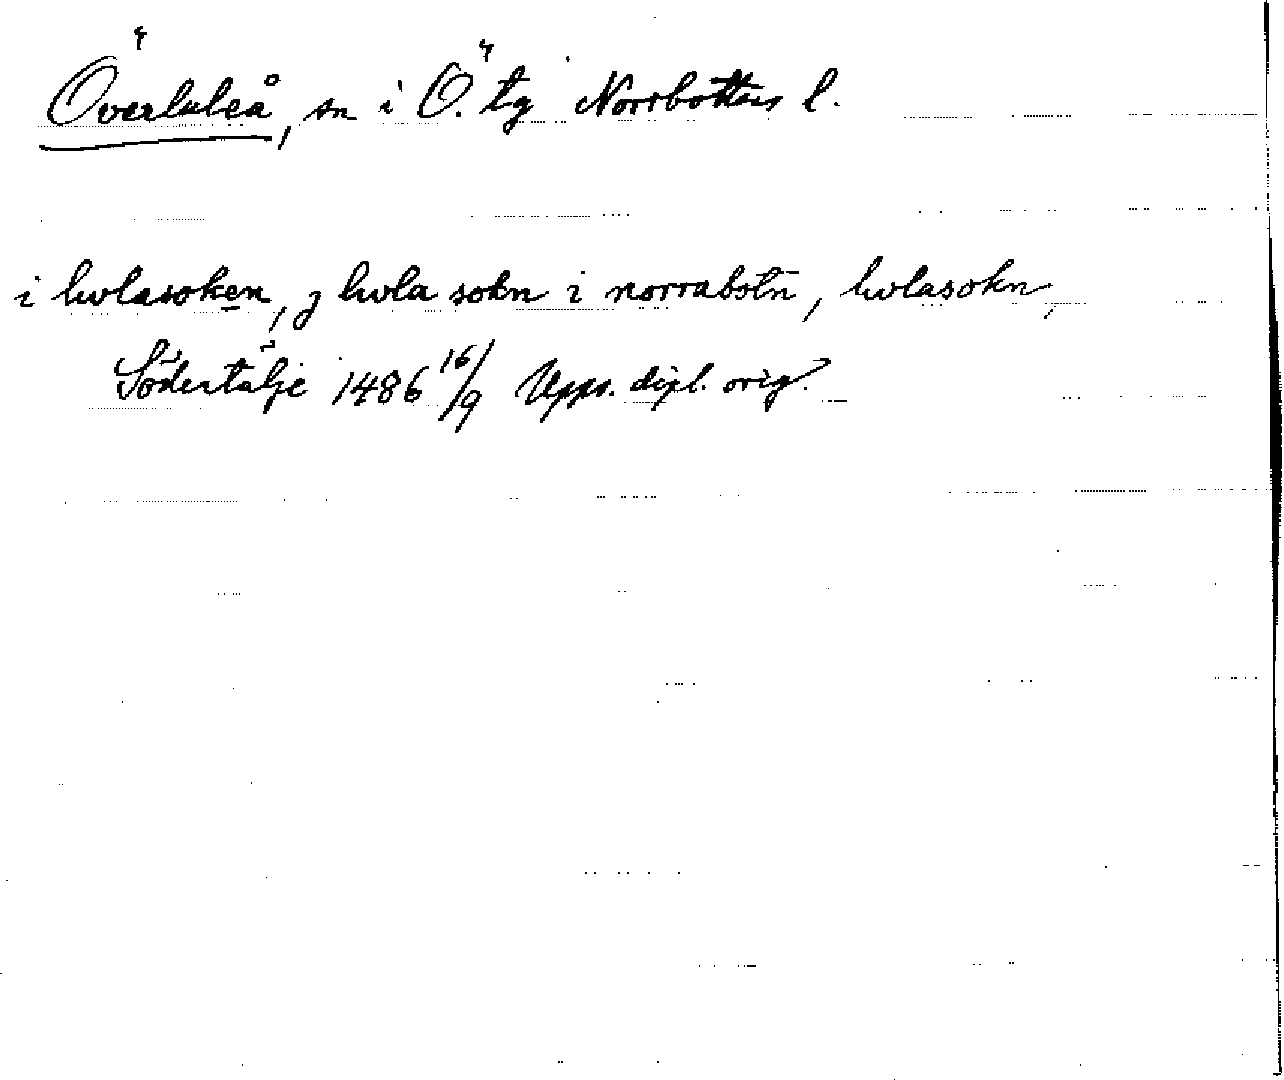 Överluleå, sn i Ö. tg Norrbottens l.
i lwlasoken, j lwla sokn i norrabotn, lwlasokn,
Södertälje 1486 16/9 Upps. dipl. orig.